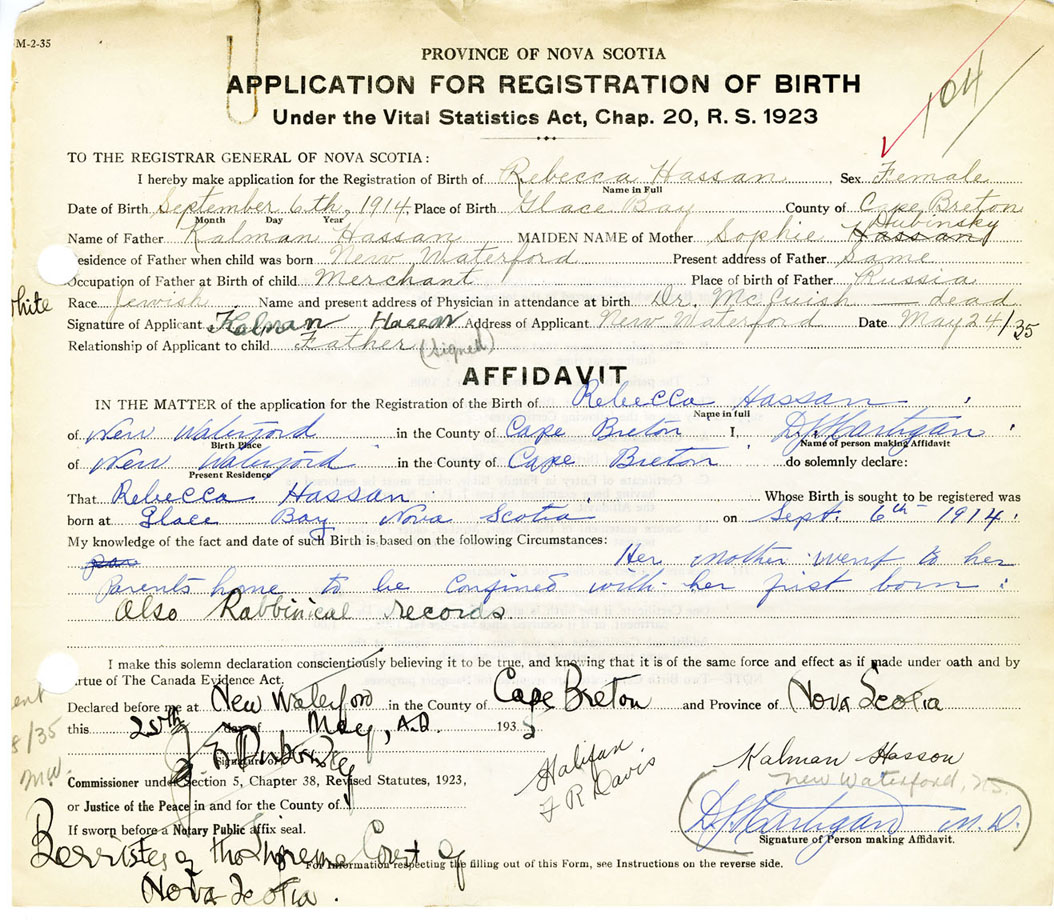 M-2-35
PROVINCE OF NOVA SCOTIA
104
APPLICATION FOR REGISTRATION OF BIRTH
Under the Vital Statistics Act, Chap. 20, R. S. 1923
TO THE REGISTRAR GENERAL OF NOVA SCOTIA:
I hereby make application for the Registration of Birth of Rebecca Hassan, Sex Female
Name in Full
Date of Birth September 6th, 1914, Place of Birth Glace Bay County of Cape Breton
Month Day Year
Dubinsky
Name of Father Kalman Hassan MAIDEN NAME of Mother Sophie Hassan
esidence of Father when child was born New Waterford Present address of Father Same
Occupation of Father at Birth of child Merchant Place of birth of Father Russia
White
Race Jewish Name and present address of Physician in attendance at birth Dr. McCuish — dead
Signature of Applicant Kalman Hassan Address of Applicant New Waterford Date May 24/35
Relationship of Applicant to child Father (signed)
AFFIDAVIT
IN THE MATTER of the application for the Registration of the Birth of Rebecca Hassan,
Name in full
of New Waterford in the County of Cape Breton I, D J Hartigan
Birth Place Name of person making Affidavit
of New Waterford in the County of Cape Breton do solemnly declare:
Present Residence
That Rebecca Hassan Whose Birth is sought to be registered was
born at Glace Bay Nova Scotia on Sept. 6th 1914.
My knowledge of the fact and date of such Birth is based on the following Circumstances:
Her mother went to her
Parents home to be confined with her first born.
Also Rabbinical records
I make this solemn declaration conscientiously believing it to be true, and knowing that it is of the same force and effect as if made under oath and by
irtue of The Canada Evidence Act.
Declared before me at New Waterford in the County of Cape Breton and Province of Nova Scotia
this 25th day of May, A.D. 1935
8/35
Signature
Halifax
F R Davis
Kalman Hasson
New Waterford, N.S.
Commissioner under Section 5, Chapter 38, Revised Statutes, 1923,
or Justice of the Peace in and for the County of
(D J Hartigan M.D.)
Signature of Person making Affidavit.
If sworn before a Notary Public affix seal.
Barrister of the Supreme Court of
For Information respecting the filling out of this Form, see Instructions on the reverse side.
Nova Scotia.